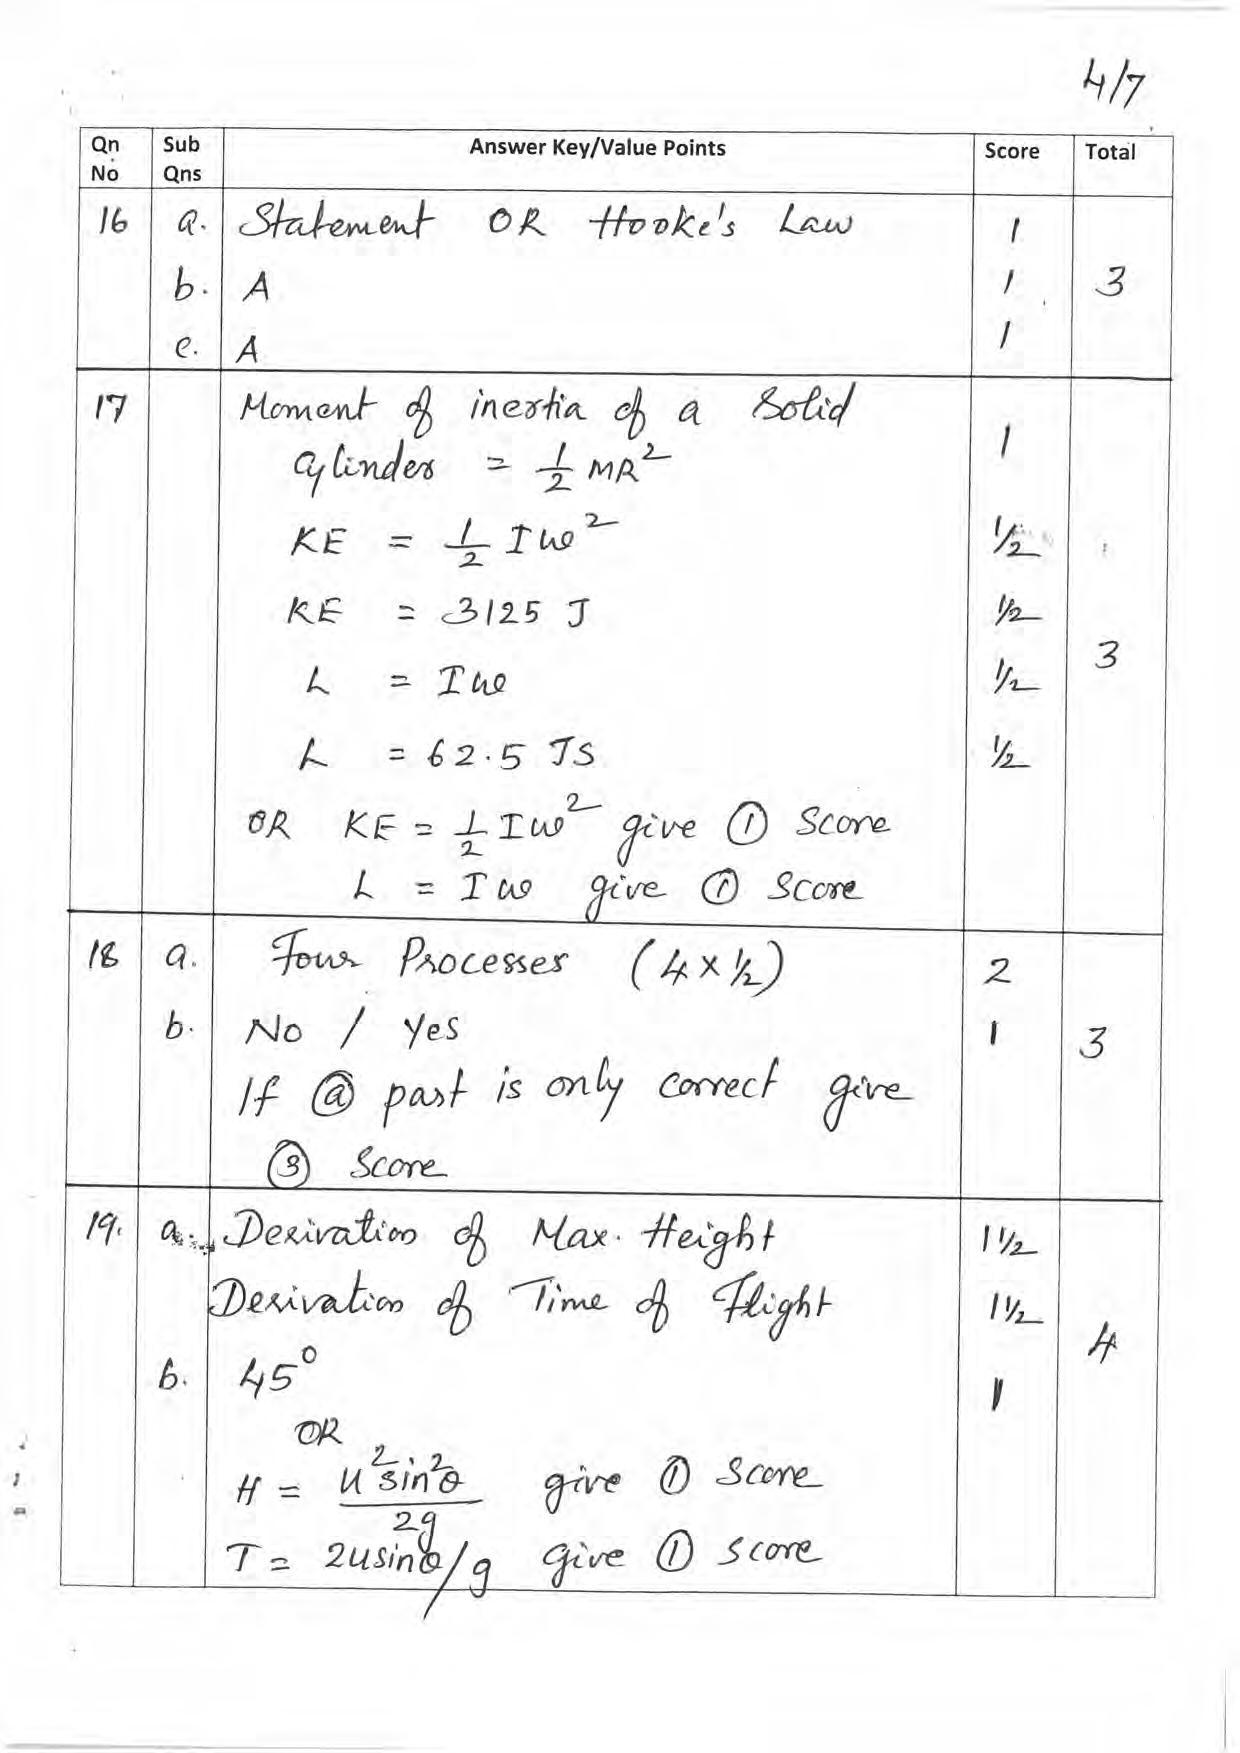 4/7
Qn No Sub Qns Answer Key/Value Points Score Total
16 a. Statement OR Hooke's Law 1
b. A 1 3
c. A 1
17 Moment of inertia of a solid
cylinder = 1/2 MR² 1
KE = 1/2 Iω² 1/2
KE = 3125 J 1/2
3
L = Iω 1/2
L = 62.5 JS 1/2
OR KE = 1/2 Iω² give ① Score
L = Iω give ① Score
18 a. Four Processes (4 × 1/2) 2
b. No / Yes 1 3
If ⓐ part is only correct give
③ Score
19. a. Derivation of Max. Height 1 1/2
Derivation of Time of Flight 1 1/2
4
b. 45° 1
OR
H = u² sin²θ / 2g give ① Score
T = 2usinθ/g give ① Score